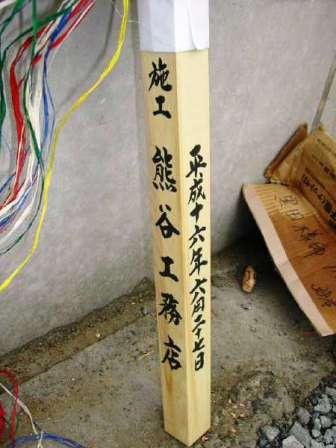 施工 熊谷工務店
平成十六年六月二十七日